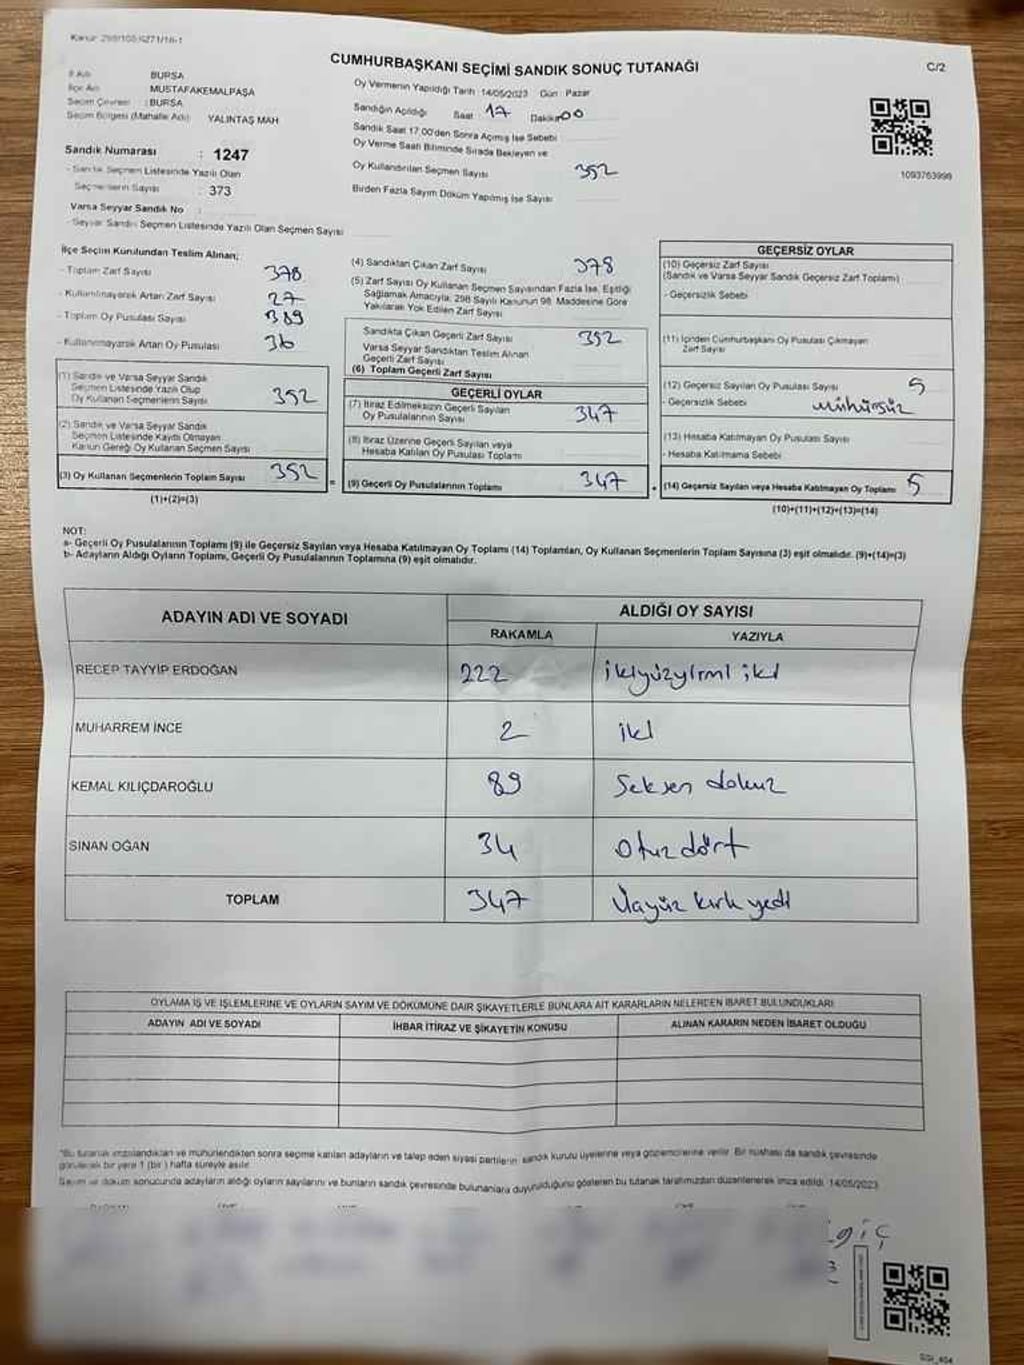 Kanun 298/105;6271/16-1
C/2
CUMHURBAŞKANI SEÇİMİ SANDIK SONUÇ TUTANAĞI
İl Adı BURSA
İlçe Adı MUSTAFAKEMALPAŞA
Seçim Çevresi : BURSA
Seçim Bölgesi (Mahalle Adı) YALINTAŞ MAH
Sandık Numarası : 1247
- Sandık Seçmen Listesinde Yazılı Olan
Seçmenlerin Sayısı : 373
Varsa Seyyar Sandık No :
- Seyyar Sandık Seçmen Listesinde Yazılı Olan Seçmen Sayısı
Oy Vermenin Yapıldığı Tarih : 14/05/2023 Gün : Pazar
Sandığın Açıldığı Saat 17 Dakika 00
Sandık Saat 17.00'den Sonra Açılmış İse Sebebi
Oy Verme Saati Bitiminde Sırada Bekleyen ve
Oy Kullandırılan Seçmen Sayısı 352
Birden Fazla Sayım Döküm Yapılmış İse Sayısı
1093763998
İlçe Seçim Kurulundan Teslim Alınan;
- Toplam Zarf Sayısı 378
- Kullanılmayarak Artan Zarf Sayısı 27
- Toplam Oy Pusulası Sayısı 389
- Kullanılmayarak Artan Oy Pusulası 36
(1) Sandık ve Varsa Seyyar Sandık
Seçmen Listesinde Yazılı Olup
Oy Kullanan Seçmenlerin Sayısı 352
(2) Sandık ve Varsa Seyyar Sandık
Seçmen Listesinde Kayıtlı Olmayan
Kanun Gereği Oy Kullanan Seçmen Sayısı
(3) Oy Kullanan Seçmenlerin Toplam Sayısı 352
(1)+(2)=(3)
(4) Sandıktan Çıkan Zarf Sayısı 378
(5) Zarf Sayısı Oy Kullanan Seçmen Sayısından Fazla İse, Eşitliği
Sağlamak Amacıyla, 298 Sayılı Kanunun 98. Maddesine Göre
Yakılarak Yok Edilen Zarf Sayısı
Sandıkta Çıkan Geçerli Zarf Sayısı 352
Varsa Seyyar Sandıktan Teslim Alınan
Geçerli Zarf Sayısı
(6) Toplam Geçerli Zarf Sayısı
GEÇERLİ OYLAR
(7) İtiraz Edilmeksizin Geçerli Sayılan
Oy Pusulalarının Sayısı 347
(8) İtiraz Üzerine Geçerli Sayılan veya
Hesaba Katılan Oy Pusulası Toplamı
= (9) Geçerli Oy Pusulalarının Toplamı 347
GEÇERSİZ OYLAR
(10) Geçersiz Zarf Sayısı
(Sandık ve Varsa Seyyar Sandık Geçersiz Zarf Toplamı)
- Geçersizlik Sebebi
(11) İçinden Cumhurbaşkanı Oy Pusulası Çıkmayan
Zarf Sayısı
(12) Geçersiz Sayılan Oy Pusulası Sayısı 5
- Geçersizlik Sebebi mühürsüz
(13) Hesaba Katılmayan Oy Pusulası Sayısı
- Hesaba Katılmama Sebebi
+ (14) Geçersiz Sayılan veya Hesaba Katılmayan Oy Toplamı 5
(10)+(11)+(12)+(13)=(14)
NOT:
a- Geçerli Oy Pusulalarının Toplamı (9) ile Geçersiz Sayılan veya Hesaba Katılmayan Oy Toplamı (14) Toplamları, Oy Kullanan Seçmenlerin Toplam Sayısına (3) eşit olmalıdır. (9)+(14)=(3)
b- Adayların Aldığı Oyların Toplamı, Geçerli Oy Pusulalarının Toplamına (9) eşit olmalıdır.
ADAYIN ADI VE SOYADI ALDIĞI OY SAYISI
RAKAMLA YAZIYLA
RECEP TAYYİP ERDOĞAN 222 ikiyüzyirmi iki
MUHARREM İNCE 2 iki
KEMAL KILIÇDAROĞLU 89 Seksen dokuz
SİNAN OĞAN 34 Otuz dört
TOPLAM 347 Üçyüz kırk yedi
OYLAMA İŞ VE İŞLEMLERİNE VE OYLARIN SAYIM VE DÖKÜMÜNE DAİR ŞİKAYETLERLE BUNLARA AİT KARARLARIN NELERDEN İBARET BULUNDUKLARI
ADAYIN ADI VE SOYADI İHBAR İTİRAZ VE ŞİKAYETİN KONUSU ALINAN KARARIN NEDEN İBARET OLDUĞU
*Bu tutanak imzalandıktan ve mühürlendikten sonra seçime katılan adayların ve talep eden siyasi partilerin sandık kurulu üyelerine veya gözlemcilerine verilir. Bir nüshası da sandık çevresinde
görülecek bir yere 1 (bir) hafta süreyle asılır.
Sayım ve döküm sonucunda adayların aldığı oyların sayılarını ve bunların sandık çevresinde bulunanlara duyurulduğunu gösteren bu tutanak tarafımızdan düzenlenerek imza edildi. 14/05/2023